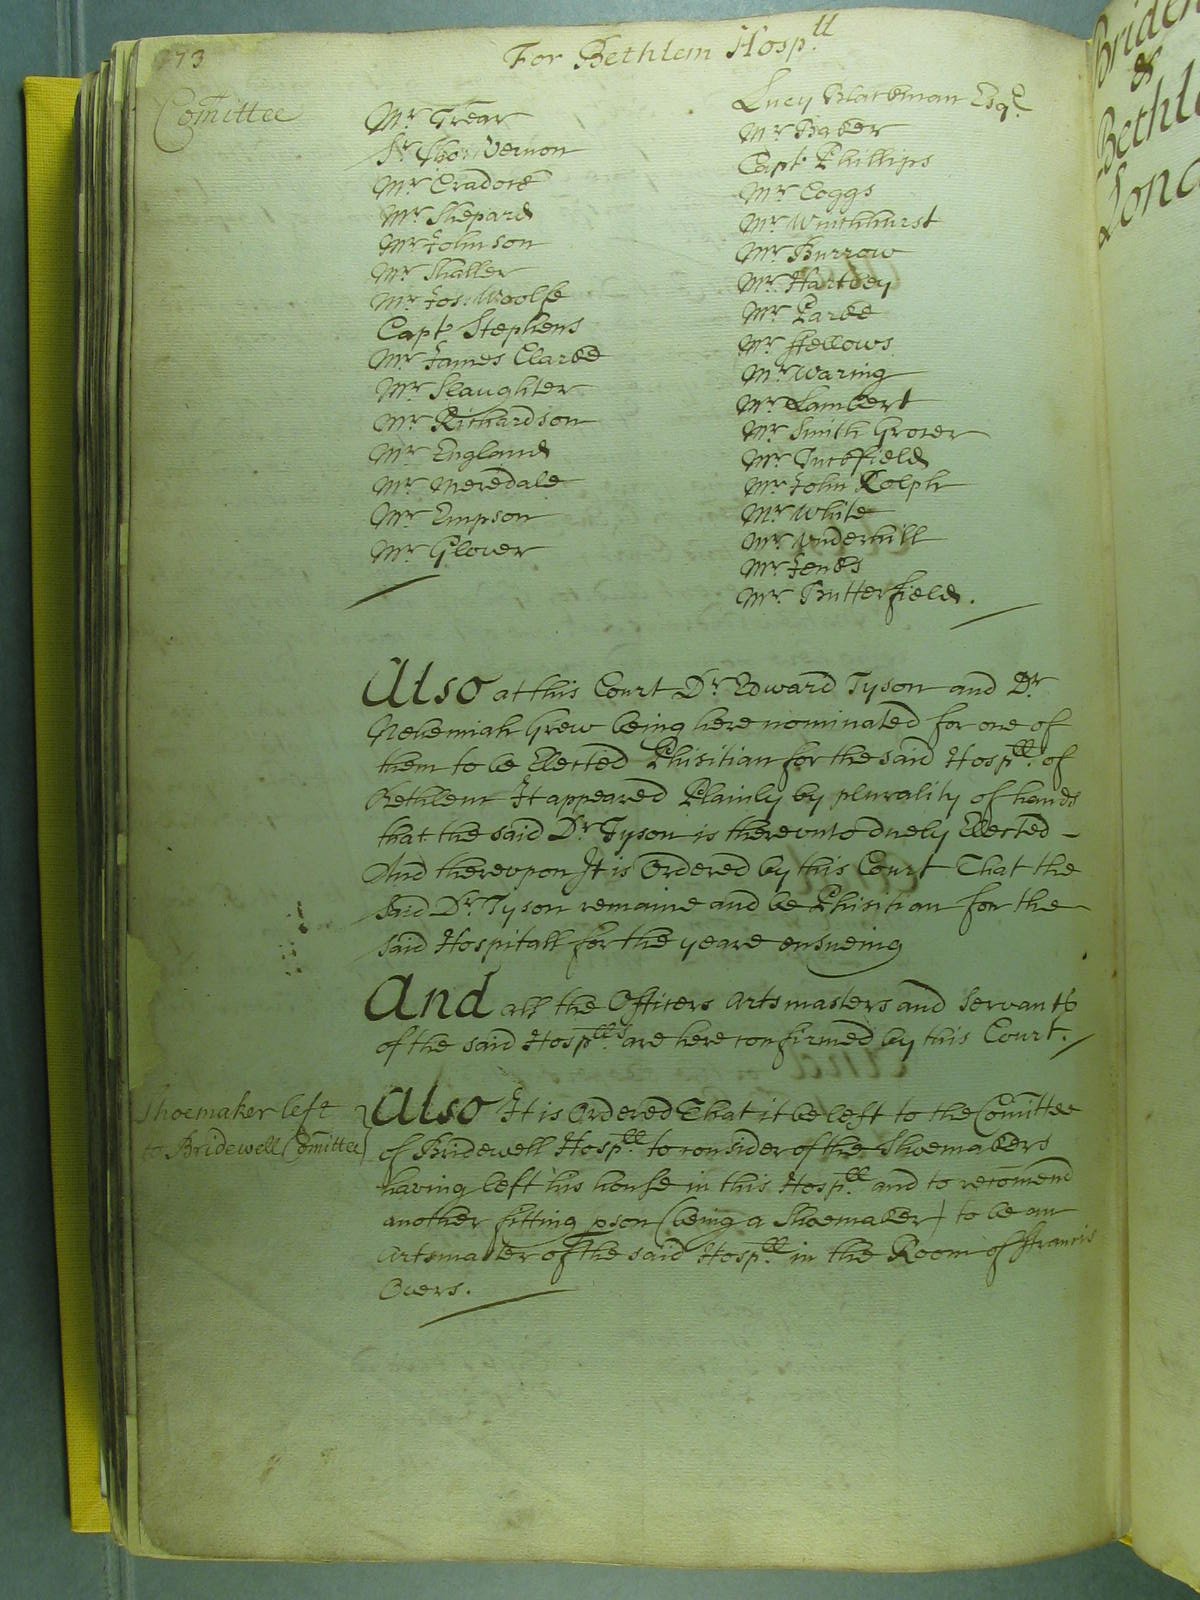 73
For Bethlem Hosp.ll
Comittee
Mr. Trẽar
Sr. Tho: Vernon
Mr. Cradock
Mr. Shepard
Mr. Johnson
Mr. Shaller
Mr. Jos: Woolfe
Capt. Stephens
Mr. James Clarke
Mr. Slaughter
Mr. Richardson
Mr. England
Mr. Meredale
Mr. Empson
Mr. Glover
Lucy Blackman Esqr.
Mr. Baker
Capt. Phillips
Mr. Coggs
Mr. Winchhurst
Mr. Burrow
Mr. Hartley
Mr. Parke
Mr. ffellows
Mr. Waring
Mr. Lambert
Mr. Smith Grocer
Mr. Tuckfield
Mr. John Rolph
Mr. White
Mr. Underhill
Mr. Jenks
Mr. Butterfield.
Also at this Court Dr. Edward Tyson and Dr.
Nehemiah Grew being here nominated for one of
them to be Elected Phisitian for the said Hosp.ll of
Bethlem It appeared Plainly by plurality of hands
that the said Dr. Tyson is therevnto duely Elected -
And therevpon It is Ordered by this Court That the
said Dr. Tyson remaine and be Phisitian for the
said Hospitall for the yeare ensueing
And all the Officers Artsmasters and Servants
of the said Hosp.lls are here confirmed by this Court.
Shoemaker left
to Bridewell Comittee
Also It is Ordered That it be left to the Comittee
of Bridewell Hosp.ll to consider of the Shoemakers
having left his house in this Hosp.ll and to recomend
another fitting pson (being a Shoemaker) to be an
Artsmaster of the said Hosp.ll in the Room of ffrancis
Overs.